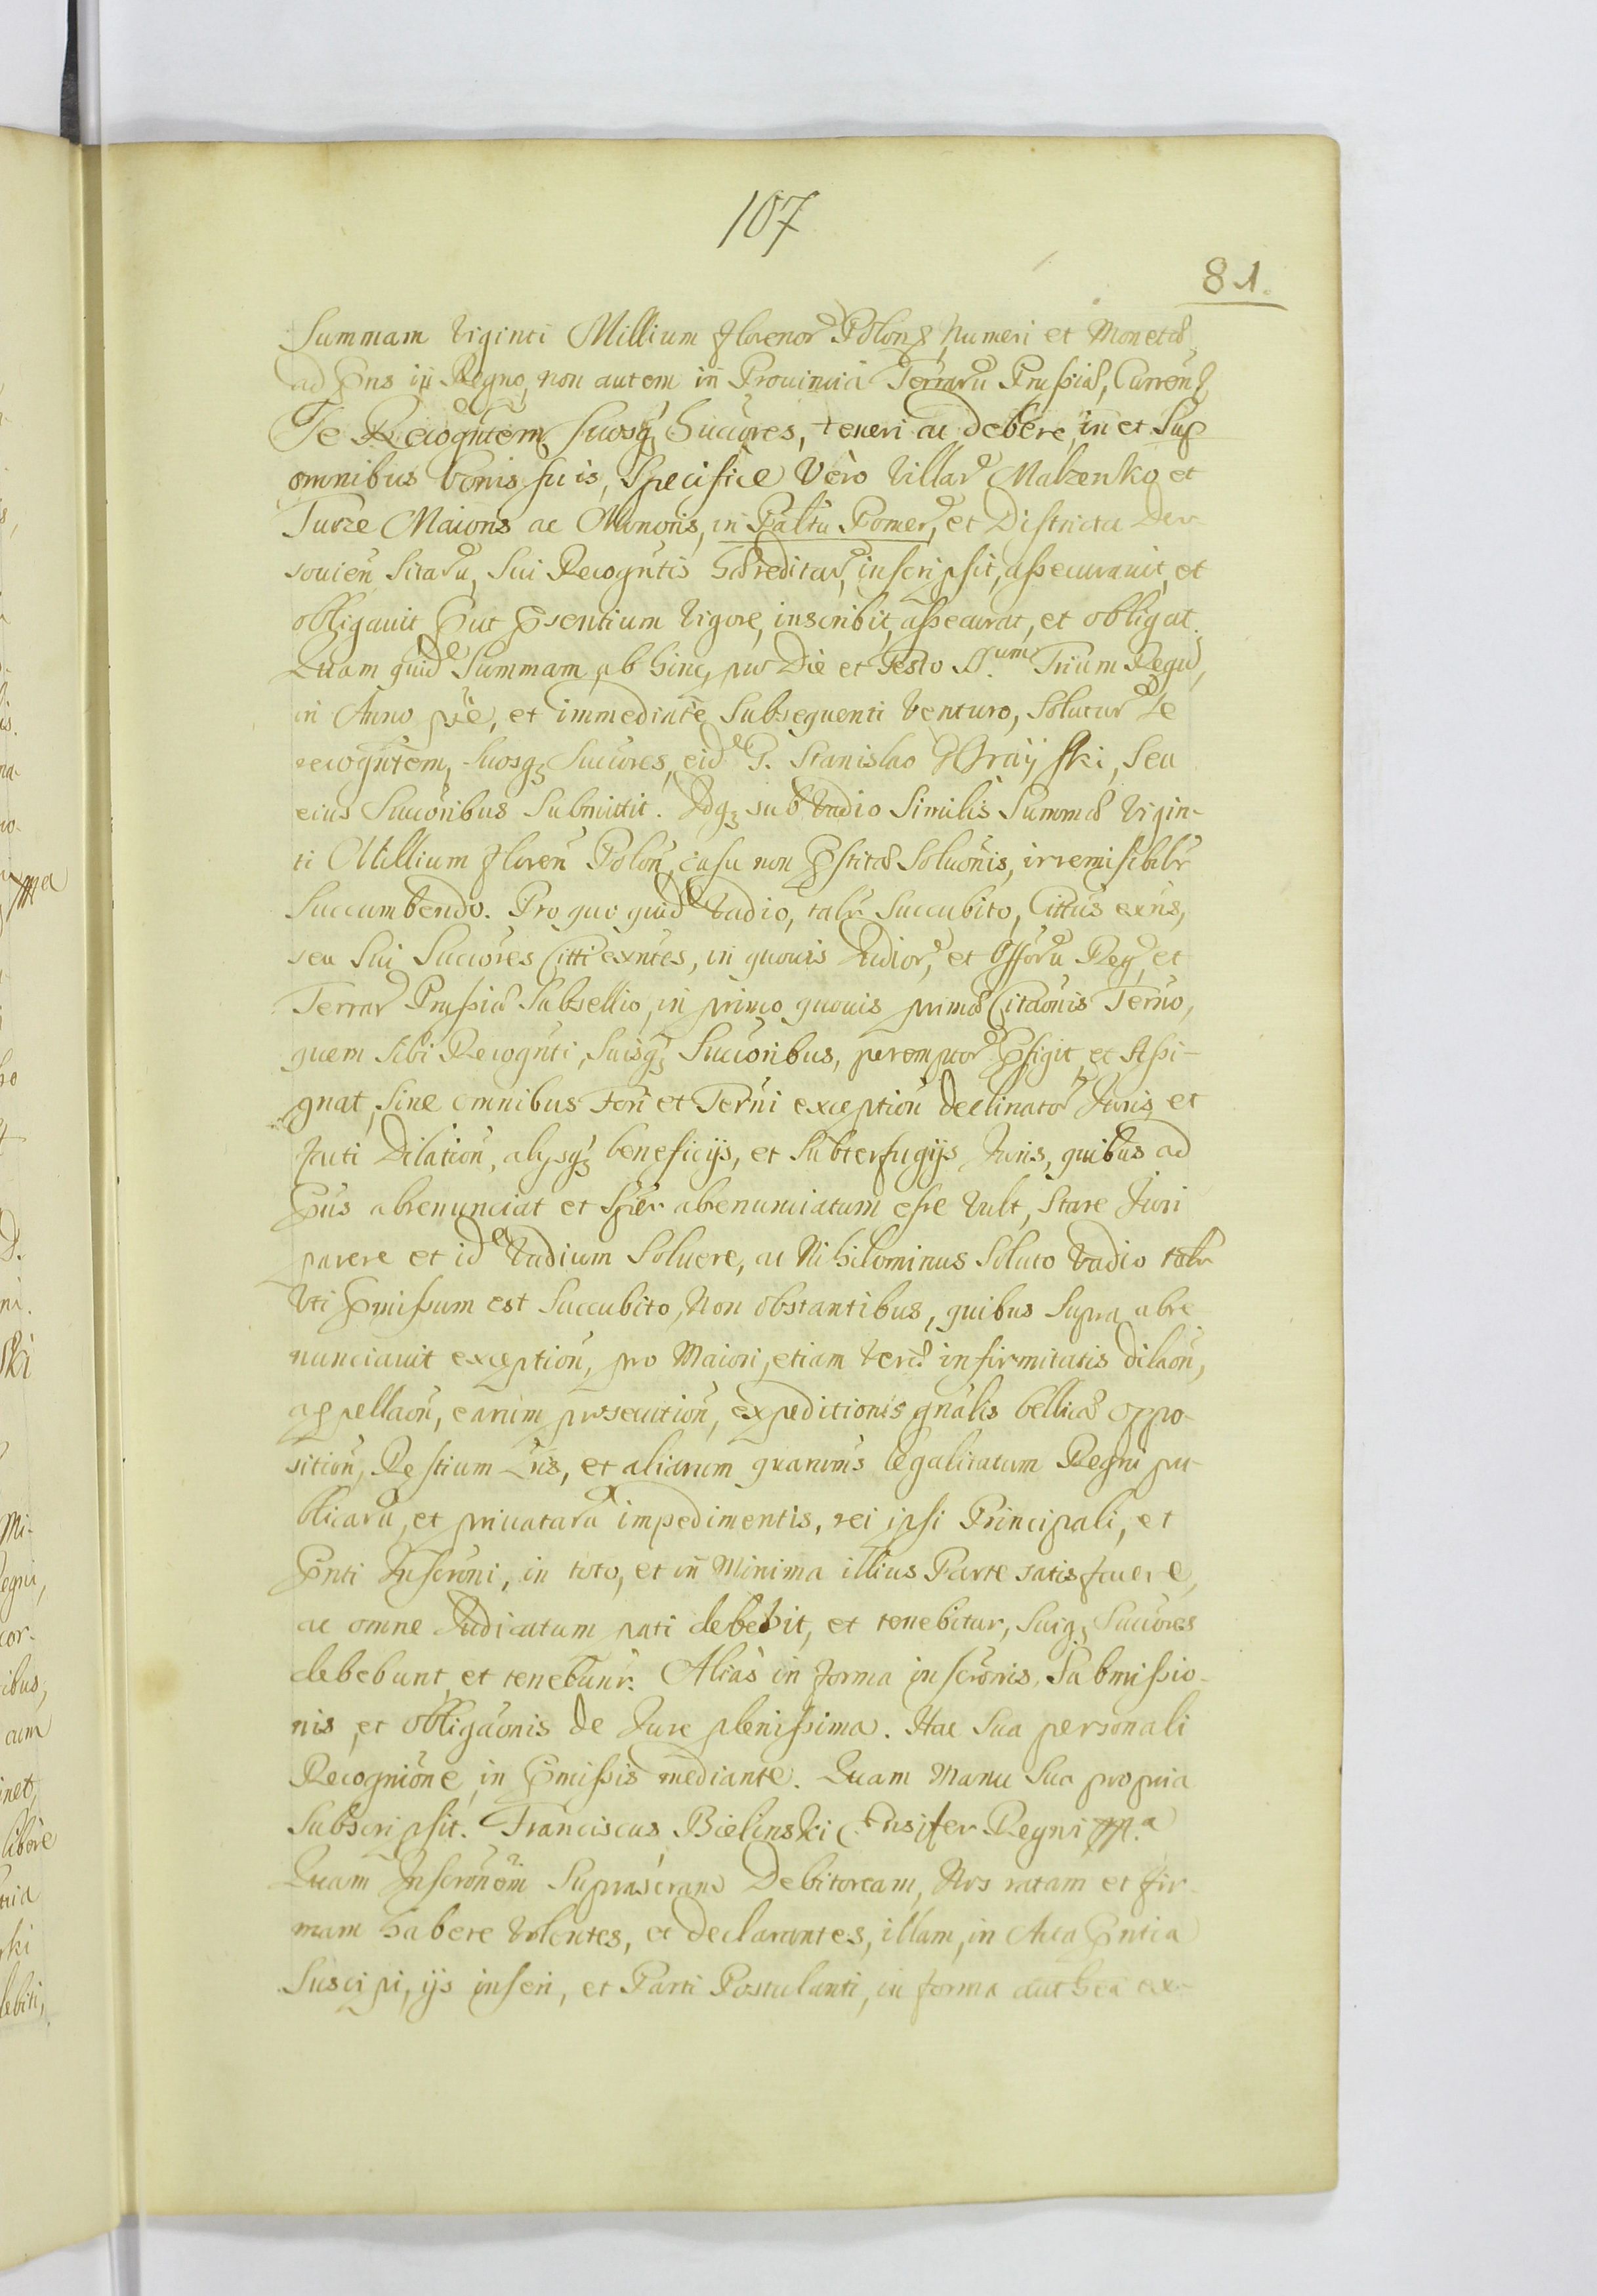 107
81.
Summam Viginti Millium florenor Polon, Numeri et Monetæ
ad p̃ns in Regno, non autem in Prouincia Terrarũ Prussiæ, Curren̄
Se Recogn̄tem, suosq́ Succũres, teneri ac debere, in et Sup
omnibus bonis suis, Specifice Vero Villar Malzenko et
Turze Maioris ac Minoris, in Pal̃tu Pomer, et Districta Der-
souień Sitarũ, Sui Recogn̄tis Hæreditar, inscripsit, assecurauit, et
obligauit, p̃ut p̃sentium Vigore, inscribit, assecurat, et obligat.
Quam quidẽ Summam, ab hinc, pro Die et Festo SS.um Trium Regũ,
in Anno p̃ẽ, et immediatè Subsequenti Venturo, Soluturũ Se
recogn̄tem, Suosq́ Succũres, eidẽ G. Stanislao Grayski, Seu
eius Succõribus Submittit. Idq́ sub Vadio Similis Summæ Vigin-
ti Millium floreń Poloń, casu non p̃stitæ Soluõnis, irremisibilr
Succumbendo. Pro quo quidẽ Vadio, talr Succubito, Cittũs exn̄s,
seu Sui Succõres Citti exn̄tes, in quouis Iudior, et Officiorũ Reg, et
Terrar Prussiæ Subsellio, in primo quouis primæ Citaõnis Terño,
quem Sibi Recogn̄ti, Suisq́ Succõribus, peremptor p̃figit, et Assi-
gnat, Sine omnibus Fori et Terñi exceptioń declinator Iuris, et
facti Dilatioń, alysq́ beneficijs, et Subterfugijs Iuris, quibus ad
p̃ns abrenunciat et Sp̃er abrenunciatum esse Vult, Stare Iuri
parere et idẽ Vadium Soluere, ac Nihilominus Soluto Vadio talr
Vti p̃missum est Succubito, Non obstantibus, quibus Supra abre
nunciauit exceptioń, pro Maiori, etiam Veræ infirmitatis dilaoń,
appellaoń, earum prosecutioń, expeditionis gñalis bellicæ oppo-
sitioń, Restium L̃ris, et aliarum quarumuis legalitatum Regni pu-
blicarũ, et priuatarũ impedimentis, rei ipsi Principali, et
p̃n̄ti Inscrõni, in toto, et in Minima illius Parte satisfacere,
ac omne Iudicatum pati debebit, et tenebitur, Suiq́ Succõres
debebunt, et tenebun̄r. Aliàs in forma inscrõnis, Submissio-
nis, et obligaõnis de Iure plenissima. Hac Sua personali
Recognitiõne, in p̃missis mediante. Quam Manu Sua propria
Subscripsit. Franciscus Bielinski Ensifer Regni mpp.a
Quam Inscrõnem Suprascr̃am Debitoream, Nos ratam et fir-
mam habere Volentes, et declarantes, illam, in Acta p̃n̄tia
Suscipi, ijs inseri, et Parti Postulanti, in forma authea ex-